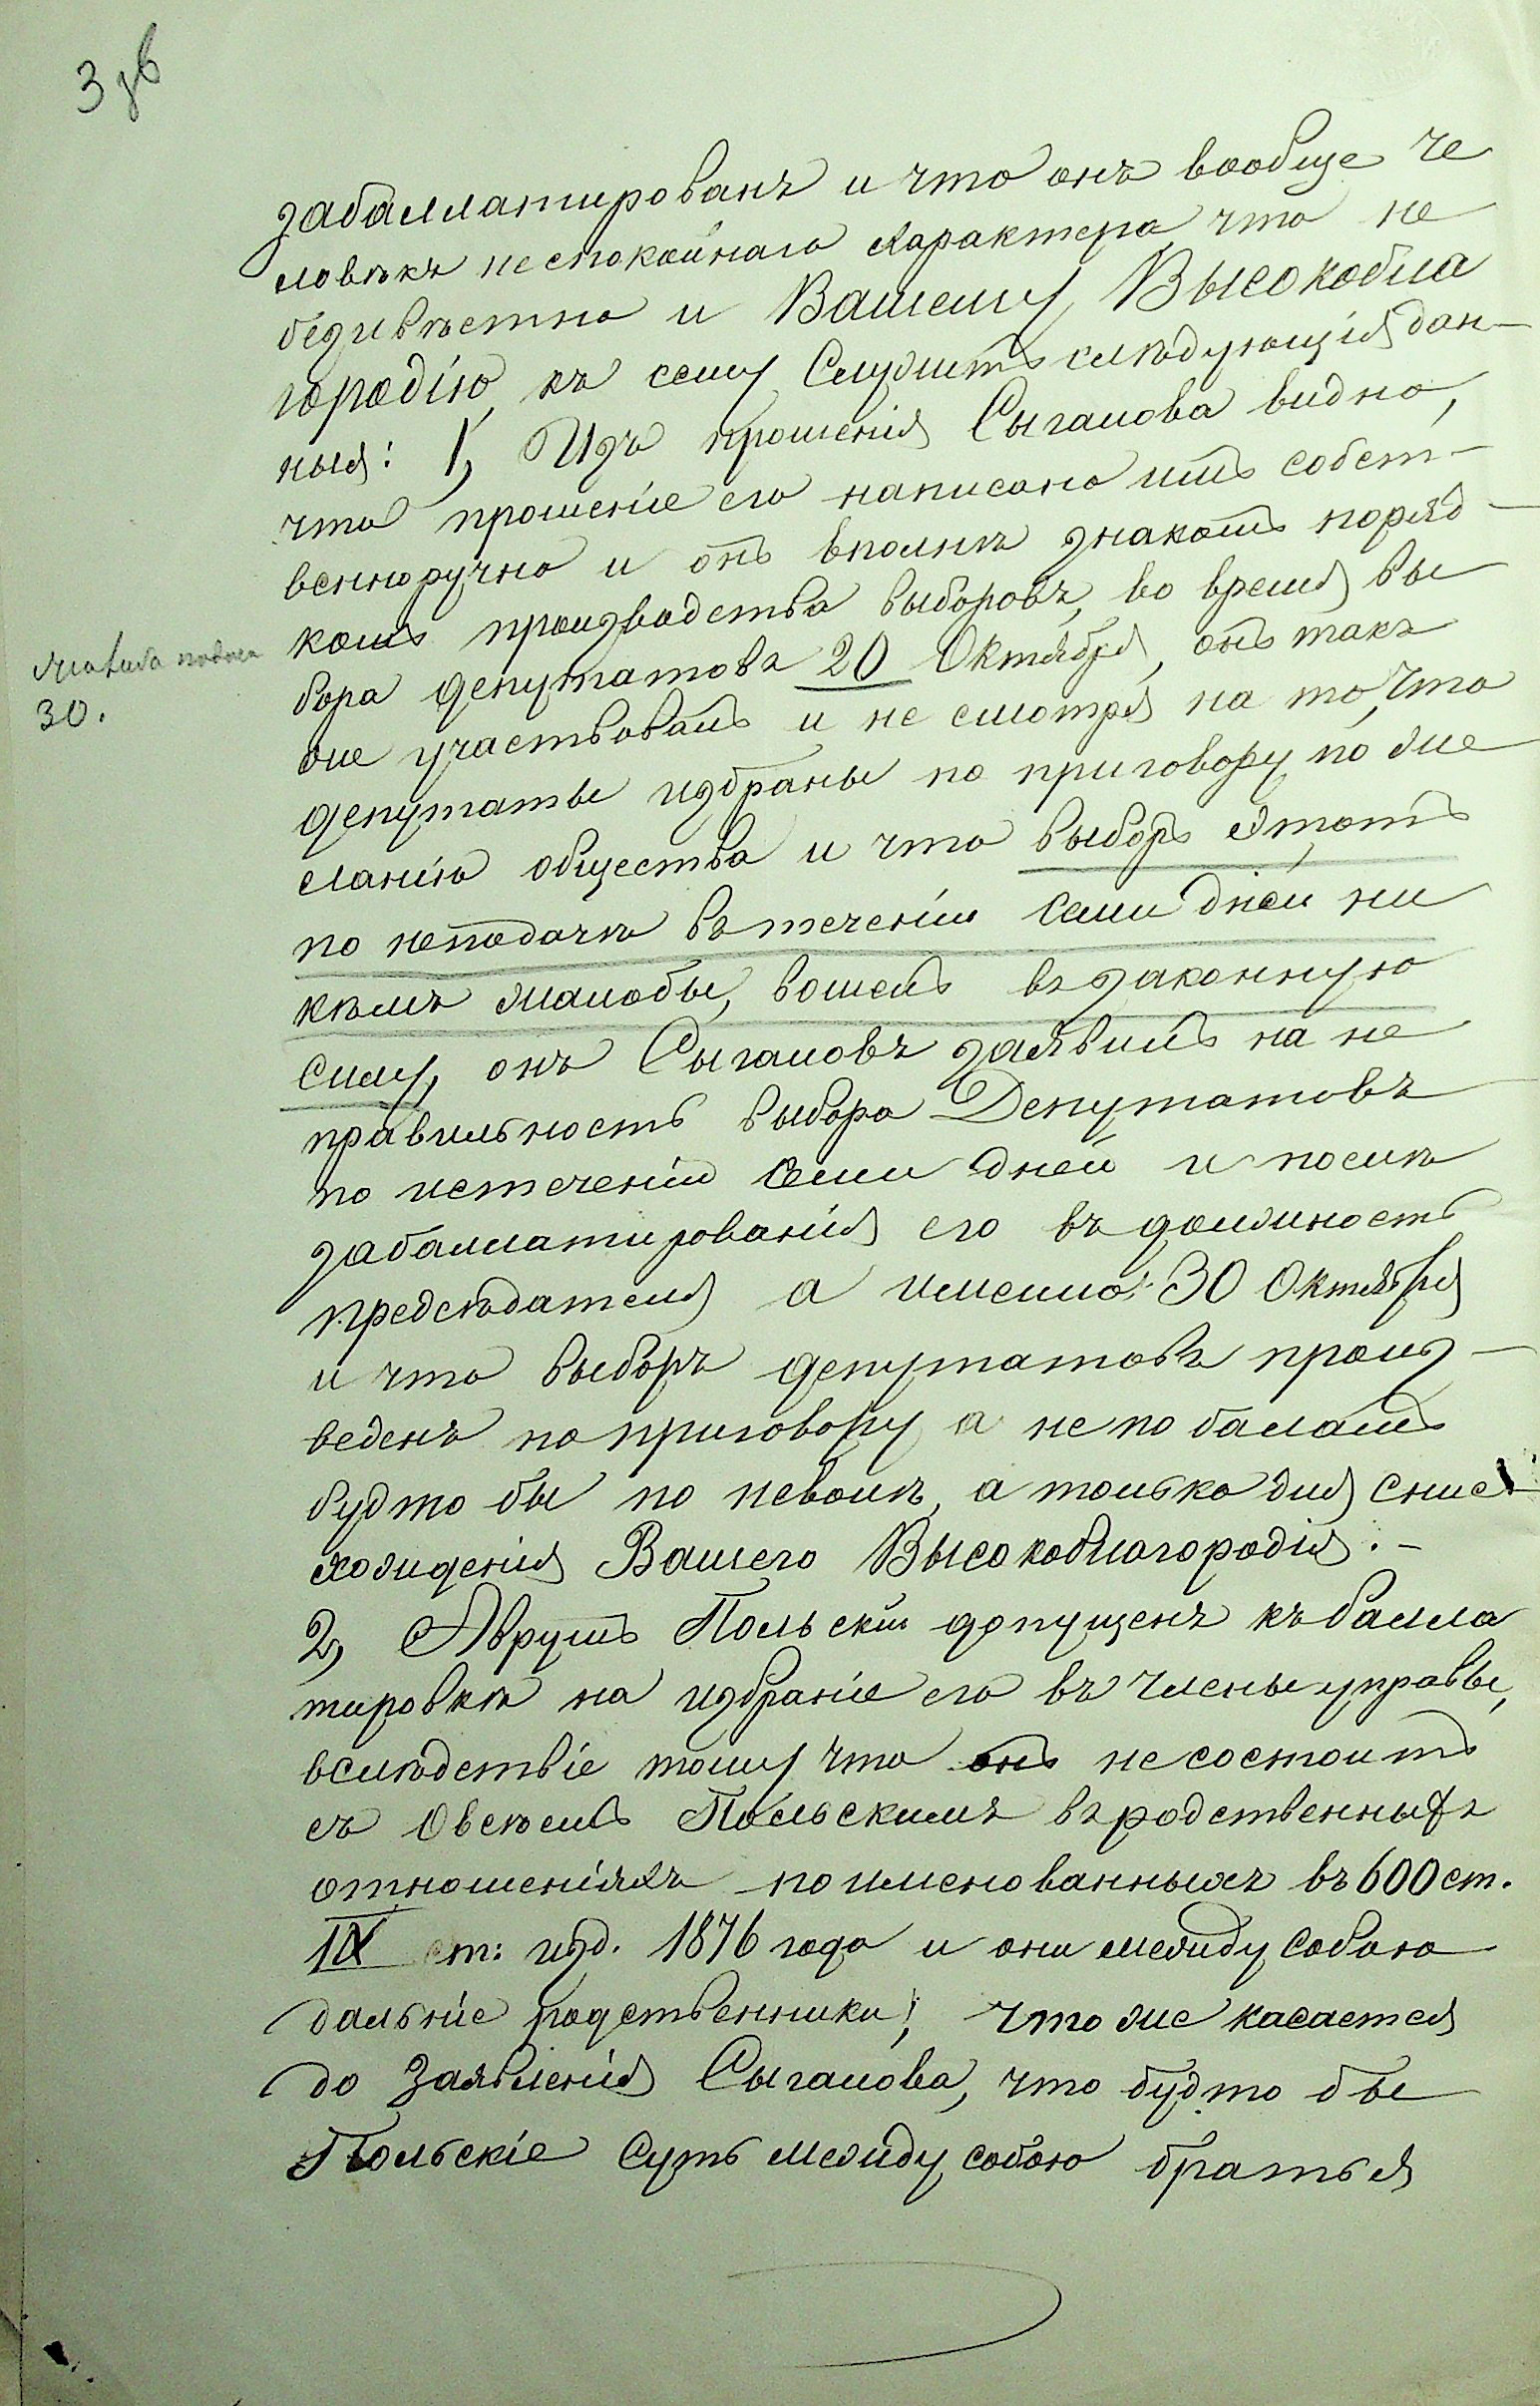 3 дв
забаллатированъ и что онъ вообще че
ловѣкъ неспокойнаго характера что не
бедзивѣстно и Вашему Высокобла
городію, къ сему Служитъ слѣдующія дан-
ныя: 1, Изъ прошенія Сыгалова видно,
что прошеніе его написано имъ собст-
венноручно и онъ вполнѣ знакомъ поряд-
комъ производства выборовъ, во время вы
бора депутатовъ 20 Октября, онъ так
же участвовалъ и не смотря на то, что
депутаты избраны по приговору по же
ланію общества и что выборъ этотъ
по неподачѣ въ теченіи семи дней ни
кѣмъ жалобы, вошелъ въ законную
силу, онъ Сыгаловъ заявилъ на не
правильность выбора Депутатовъ
по истеченіи семи дней и послѣ
забаллатированія его въ должность
предсѣдателя а именно: 30 Октября
и что выборъ депутатовъ произ-
веденъ по приговору а не по балламъ
будто бы по неволѣ, а только для снис-
хожденія Вашего Высокоблагородія.-
2, Аврумъ Польскій допущенъ къ балла
тировкѣ на избраніе его въ члены управы,
вслѣдствіе тому что онъ не состоитъ
съ Овсѣемъ Польскимъ въ родственныхъ
отношеніяхъ поименованныхъ въ 600 ст.
IX ст: изд. 1876 года и они между собою
дальніе родственники; что же касается
до Заявленія Сыгалова, что будто бы
Польскіе Суть между собою братья
жалоба подана
30.